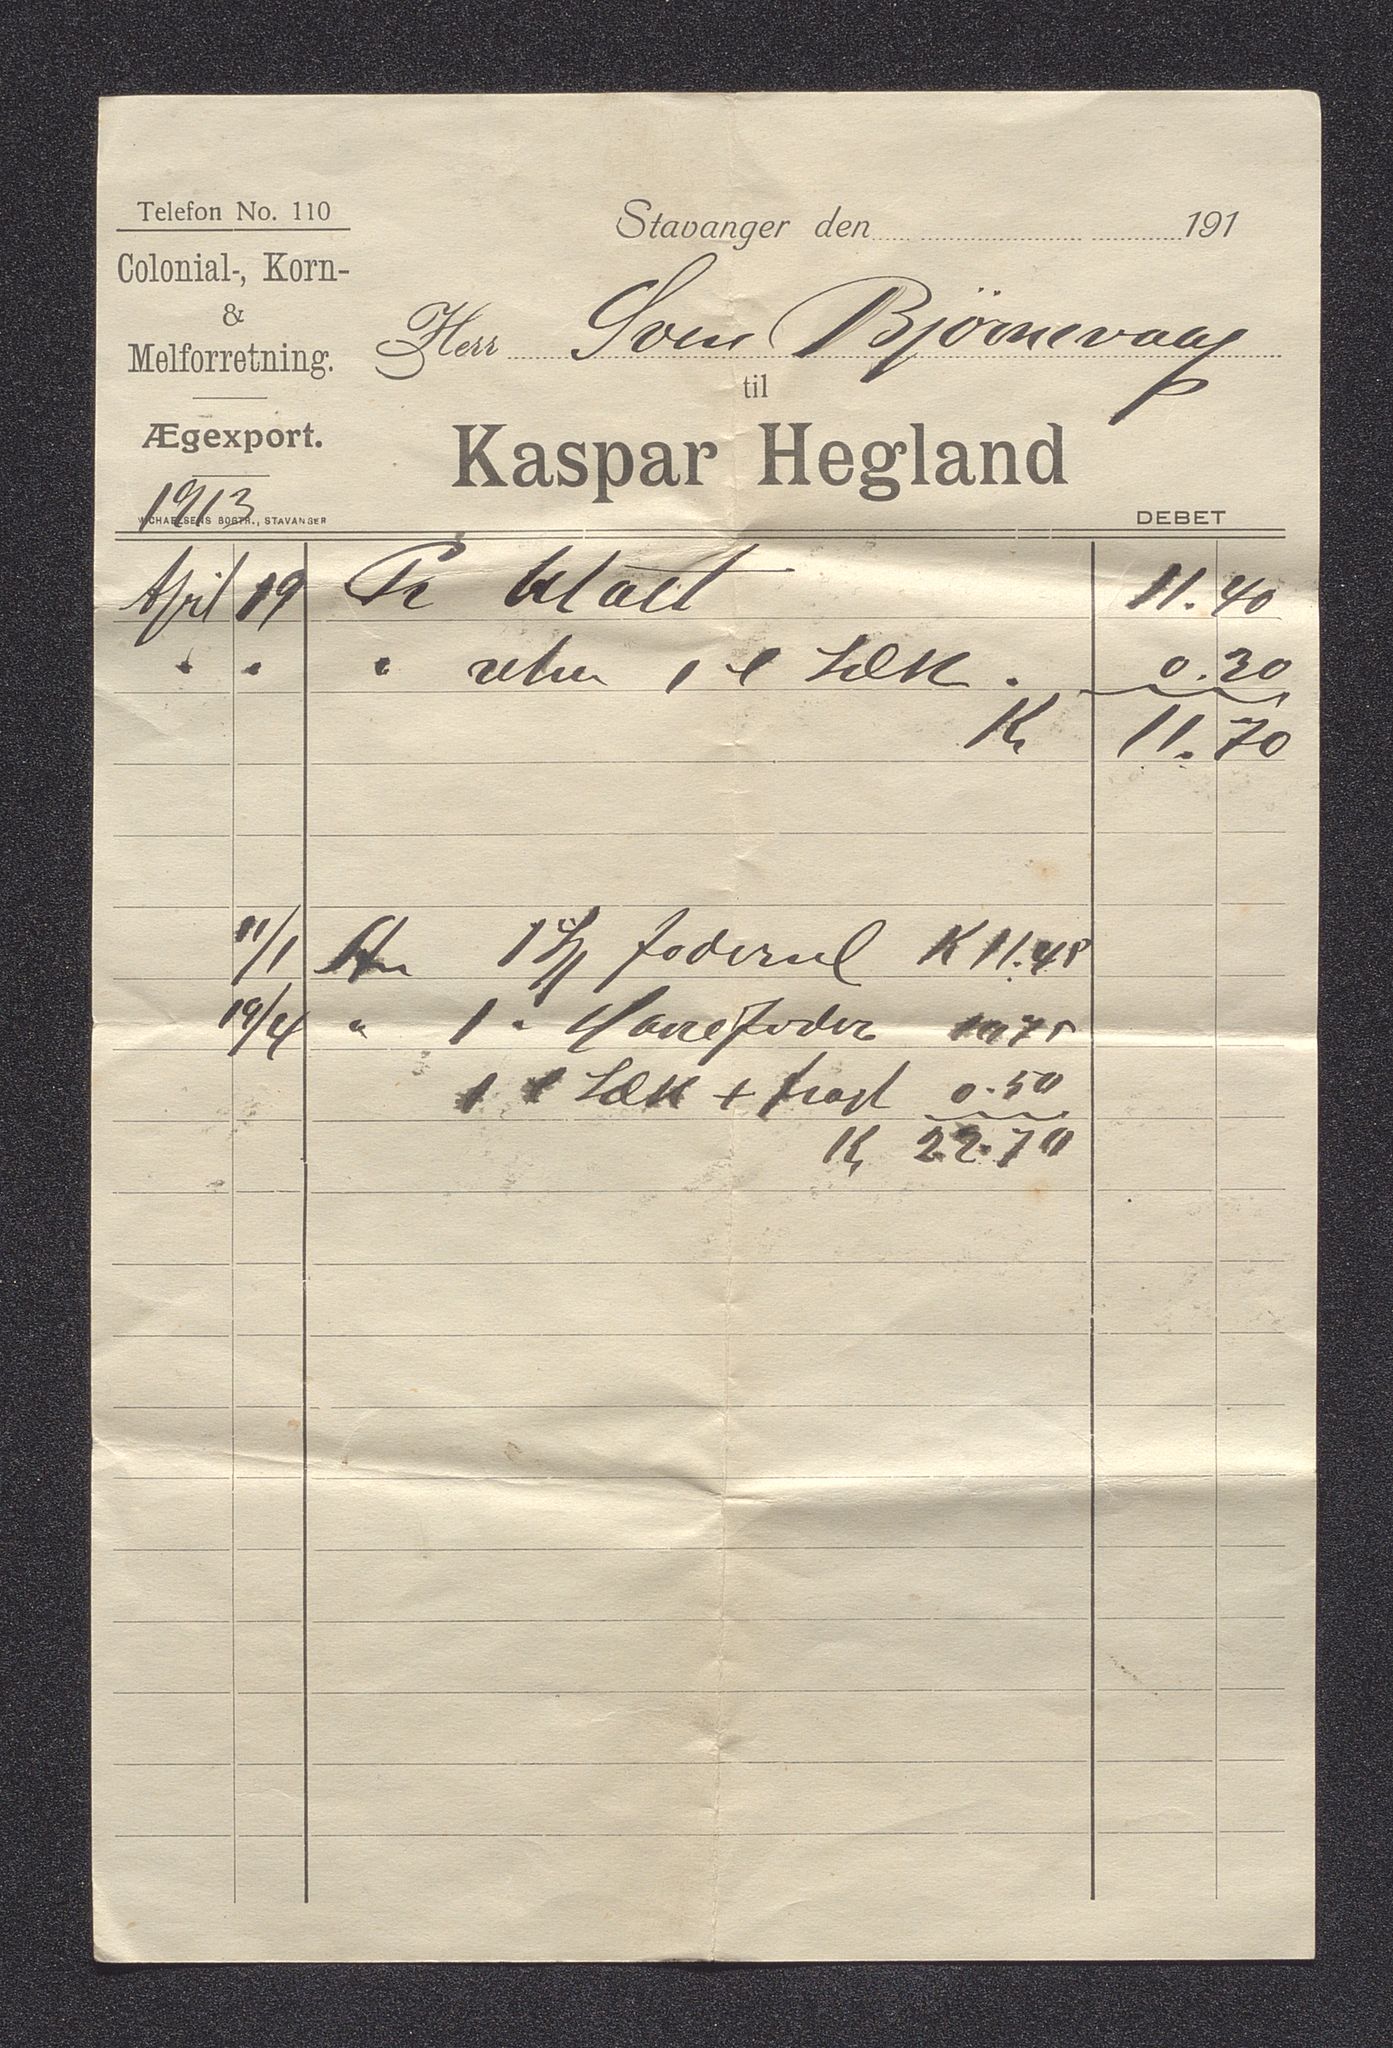 Telefon No. 110
Colonial-, Korn-
&
Melforretning.
Ægexport.
Stavanger den 191
Herr Sven Bjørnevaag
til
Kaspar Hegland
1913
MICHAELSENS BOGTR., STAVANGER
DEBET
April 19 Pr 11.40
" " " 1 Sæk . 0.30
Kr 11.70
11/1 An 1 K 11.45
19/4 " 1 " 10.75
1 Sæk + fragt 0.50
Kr 22.70